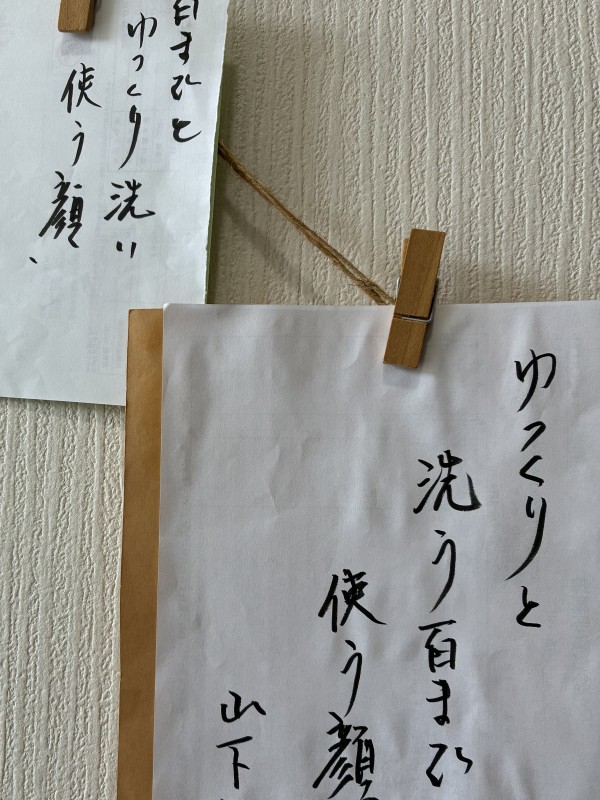 百まひと
ゆっくり洗い
使う顔、
ゆっくりと
洗う百まひ
使う顔
山下